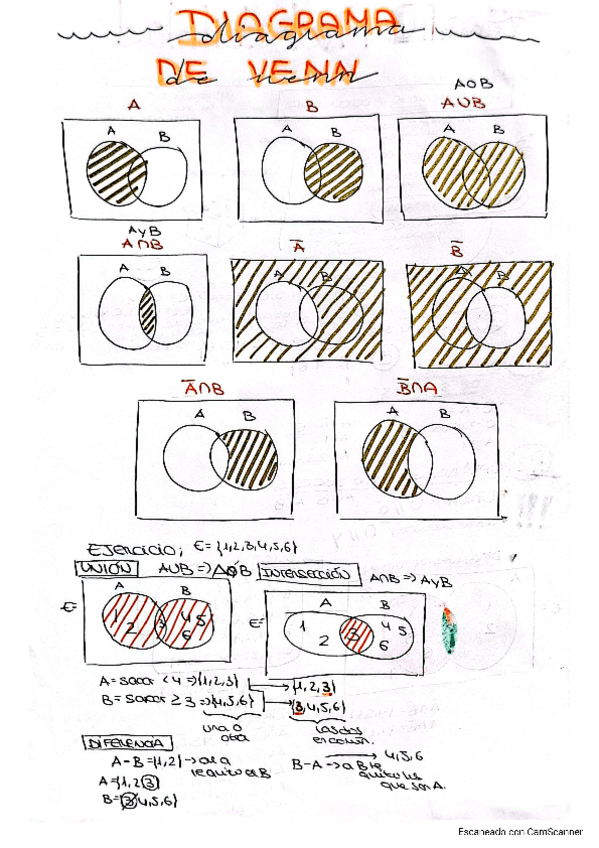 DIAGRAMA
diagrama
DE VENN
de venn
A
B
A O B
A∪B
A B
A B
A B
A y B
A∩B
A̅
B̅
A B
A B
A B
A̅∩B
B̅∩A
A B
A B
Ejercicio; E={1,2,3,4,5,6}
UNIÓN A∪B => A O B INTERSECCIÓN A∩B => A y B
E= A B
1 2 3 4 5 6
E= A B
1 2 3 4 5 6
A = sacar < 4 => {1,2,3} {1,2,3}
B = sacar ≥ 3 => {4,5,6} {3,4,5,6}
una o otra
las dos en común.
DIFERENCIA
A-B = {1,2} → a la A le quito el B
B-A → a B le quito los que son A.
4,5,6
A={1,2,3}
B={3,4,5,6}
Escaneado con CamScanner